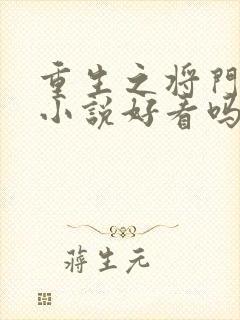 重生之将门
小说好看吗
蒋生元